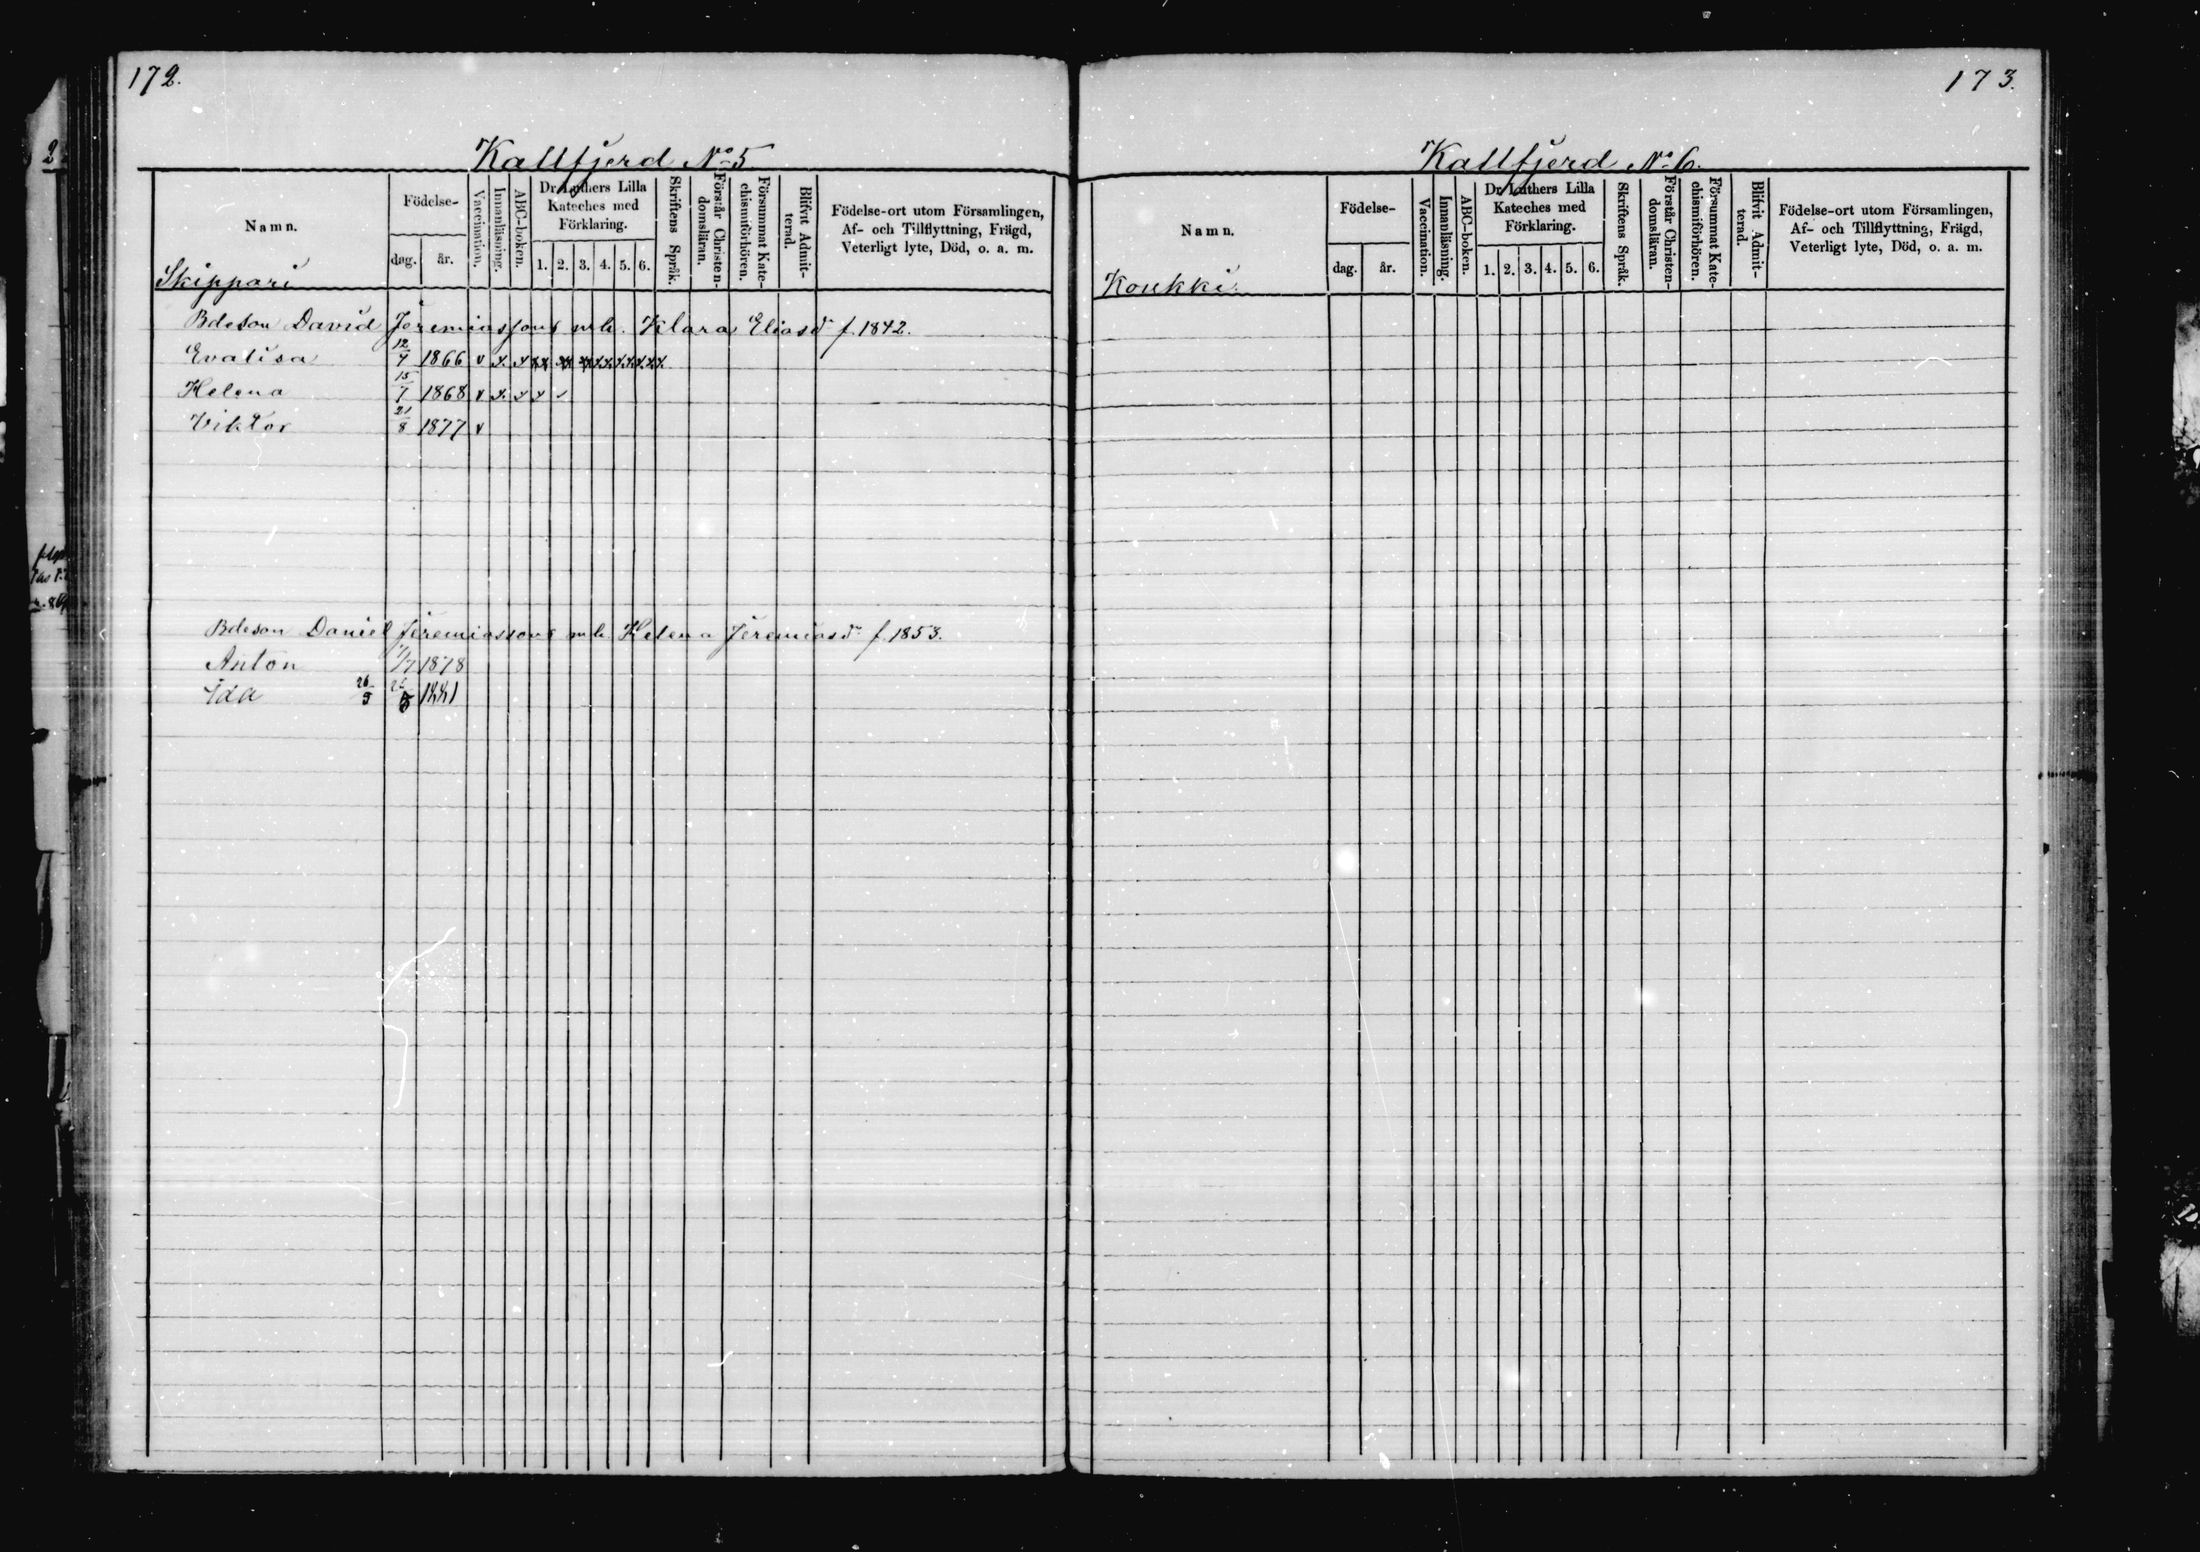 172.
Kallfjerd No 5.
Namn.
Födelse-
dag.
år.
Vaccination.
Innanläsning.
ABC-boken.
Dr Luthers Lilla
Kateches med
Förklaring.
1. 2. 3. 4. 5. 6.
Skriftens Språk.
Förstår Christen-
domsläran.
Försummat Kate-
chismiförhören.
Blifvit Admit-
terad.
Födelse-ort utom Församlingen,
Af- och Tillflyttning, Frägd,
Veterligt lyte, Död, o. a. m.
Skippari
Bdeson David Jeremiassons mh. Klara Eliasdr f. 1842.
Evalisa 12/4 1866 v x x
Helena 15/7 1868 v x x x
Viktor 21/8 1877 v
Bdeson Daniel Jeremiassons mh Helena Jeremiasdr f. 1853.
Anton 1/7 1878
Ida 26/5 1881
173.
Kallfjerd No 6.
Namn.
Födelse-
dag.
år.
Vaccination.
Innanläsning.
ABC-boken.
Dr Luthers Lilla
Kateches med
Förklaring.
1. 2. 3. 4. 5. 6.
Skriftens Språk.
Förstår Christen-
domsläran.
Försummat Kate-
chismiförhören.
Blifvit Admit-
terad.
Födelse-ort utom Församlingen,
Af- och Tillflyttning, Frägd,
Veterligt lyte, Död, o. a. m.
Koukki.